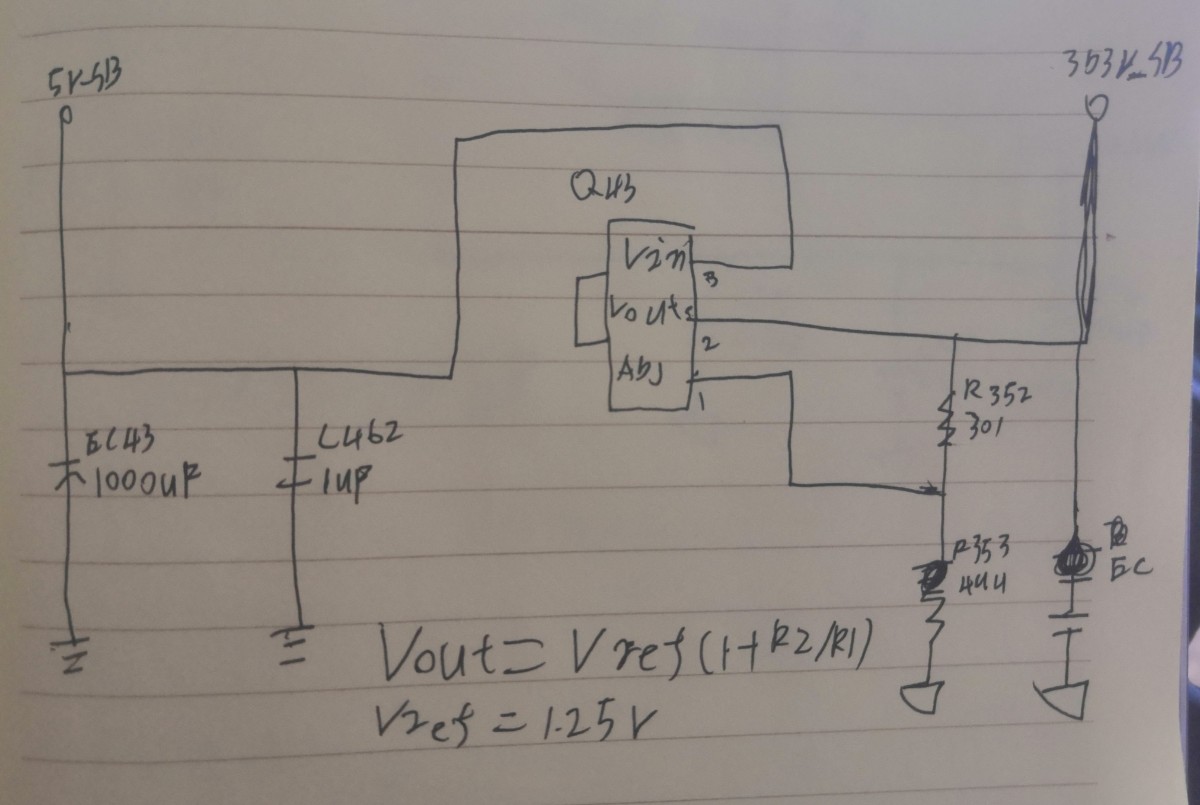 5V-SB
3D3V_SB
Q43
Vin
3
Vout
2
Adj
1
R352
301
EC43
1000uF
C462
1uF
R353
EC
Vout = Vref (1+R2/R1)
Vref = 1.25V